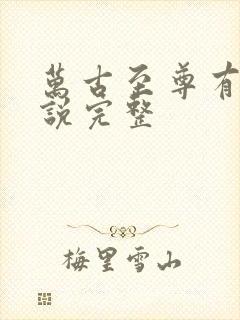 萬古至尊有
說完整
梅里雪山